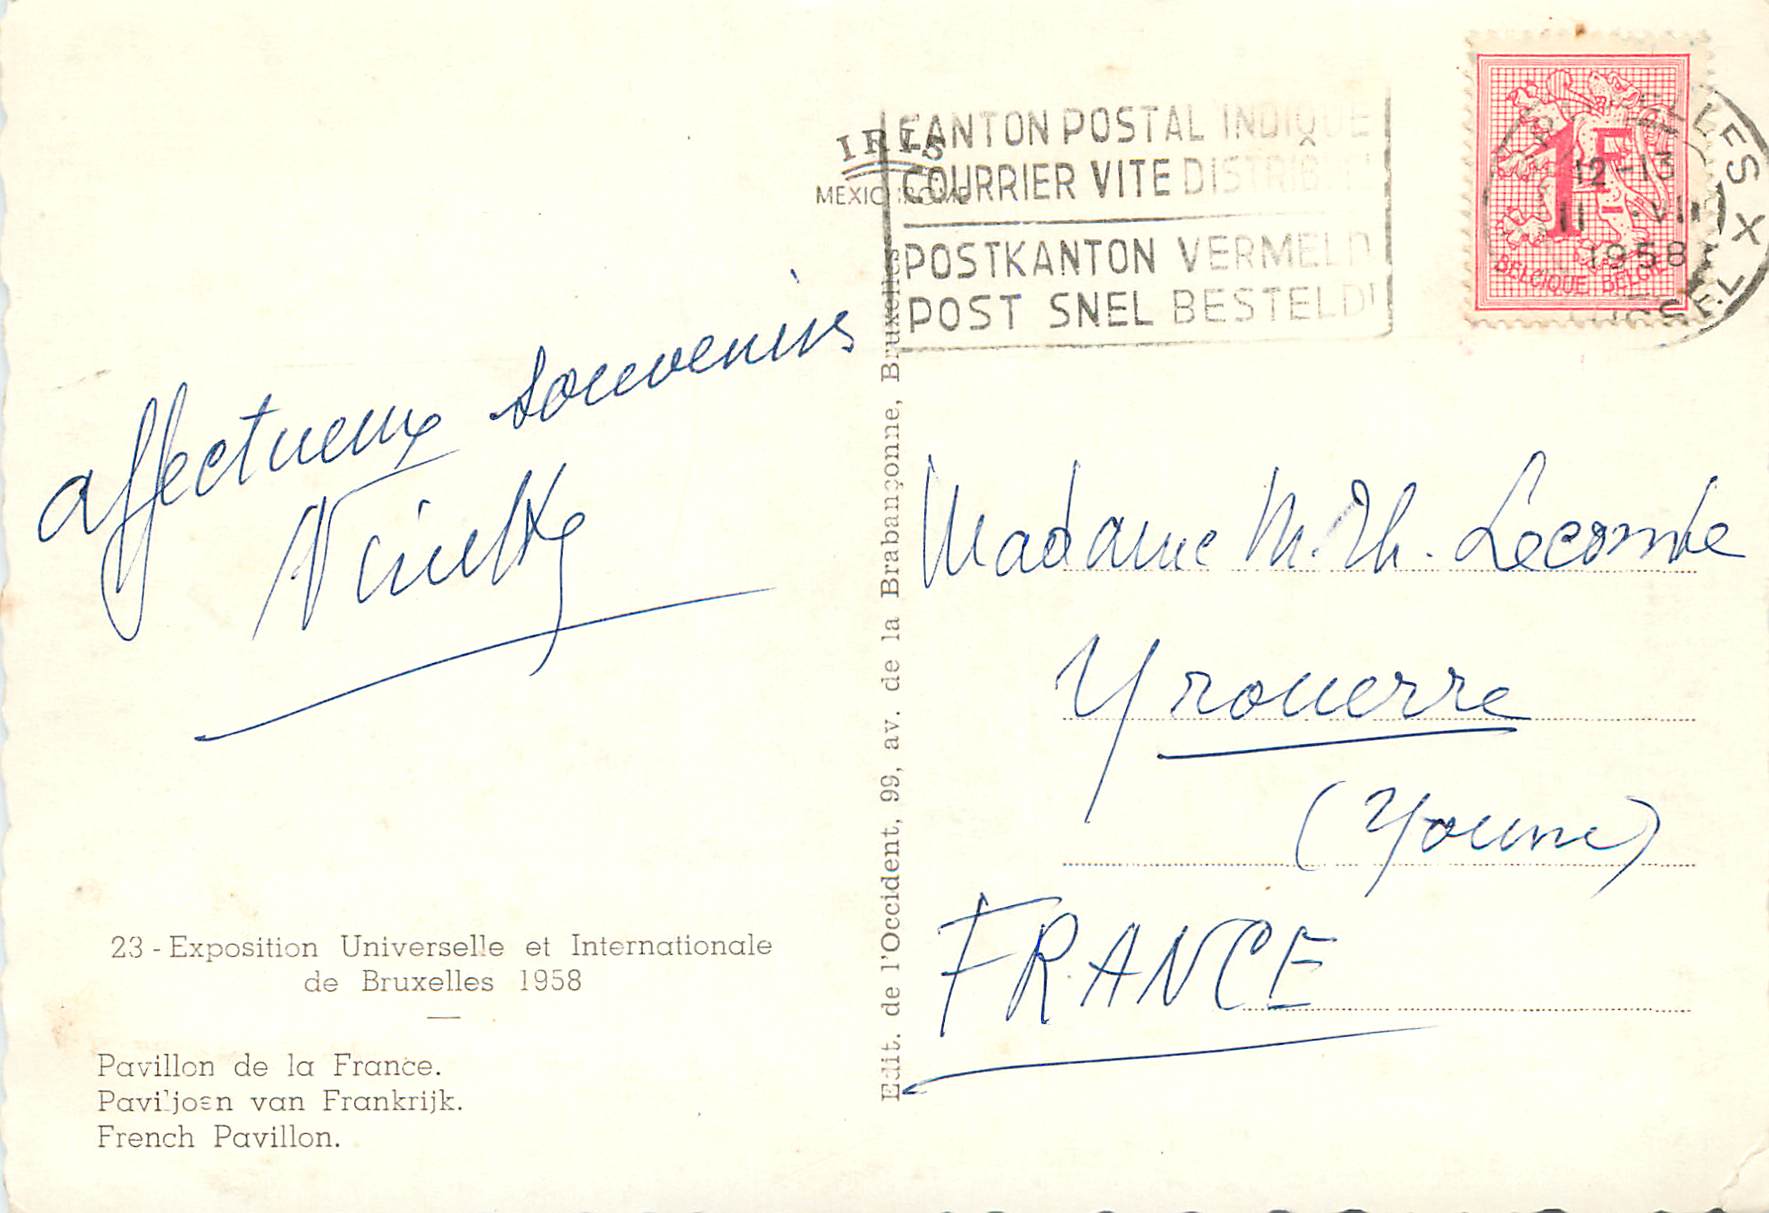 affectueux souvenirs
23 - Exposition Universelle et Internationale
de Bruxelles 1958
Pavillon de la France.
Paviljoen van Frankrijk.
French Pavillon.
Edit. de l'Occident, 99, av. de la Brabançonne, Bruxelles
IRIS
MEXICHROME
CANTON POSTAL INDIQUE
COURRIER VITE DISTRIBUE
POSTKANTON VERMELD
POST SNEL BESTELD!
1F
BELGIQUE BELGIE
12-13
1958
Madame M. Th. Lecomte
Yrouerre
(Yonne)
FRANCE